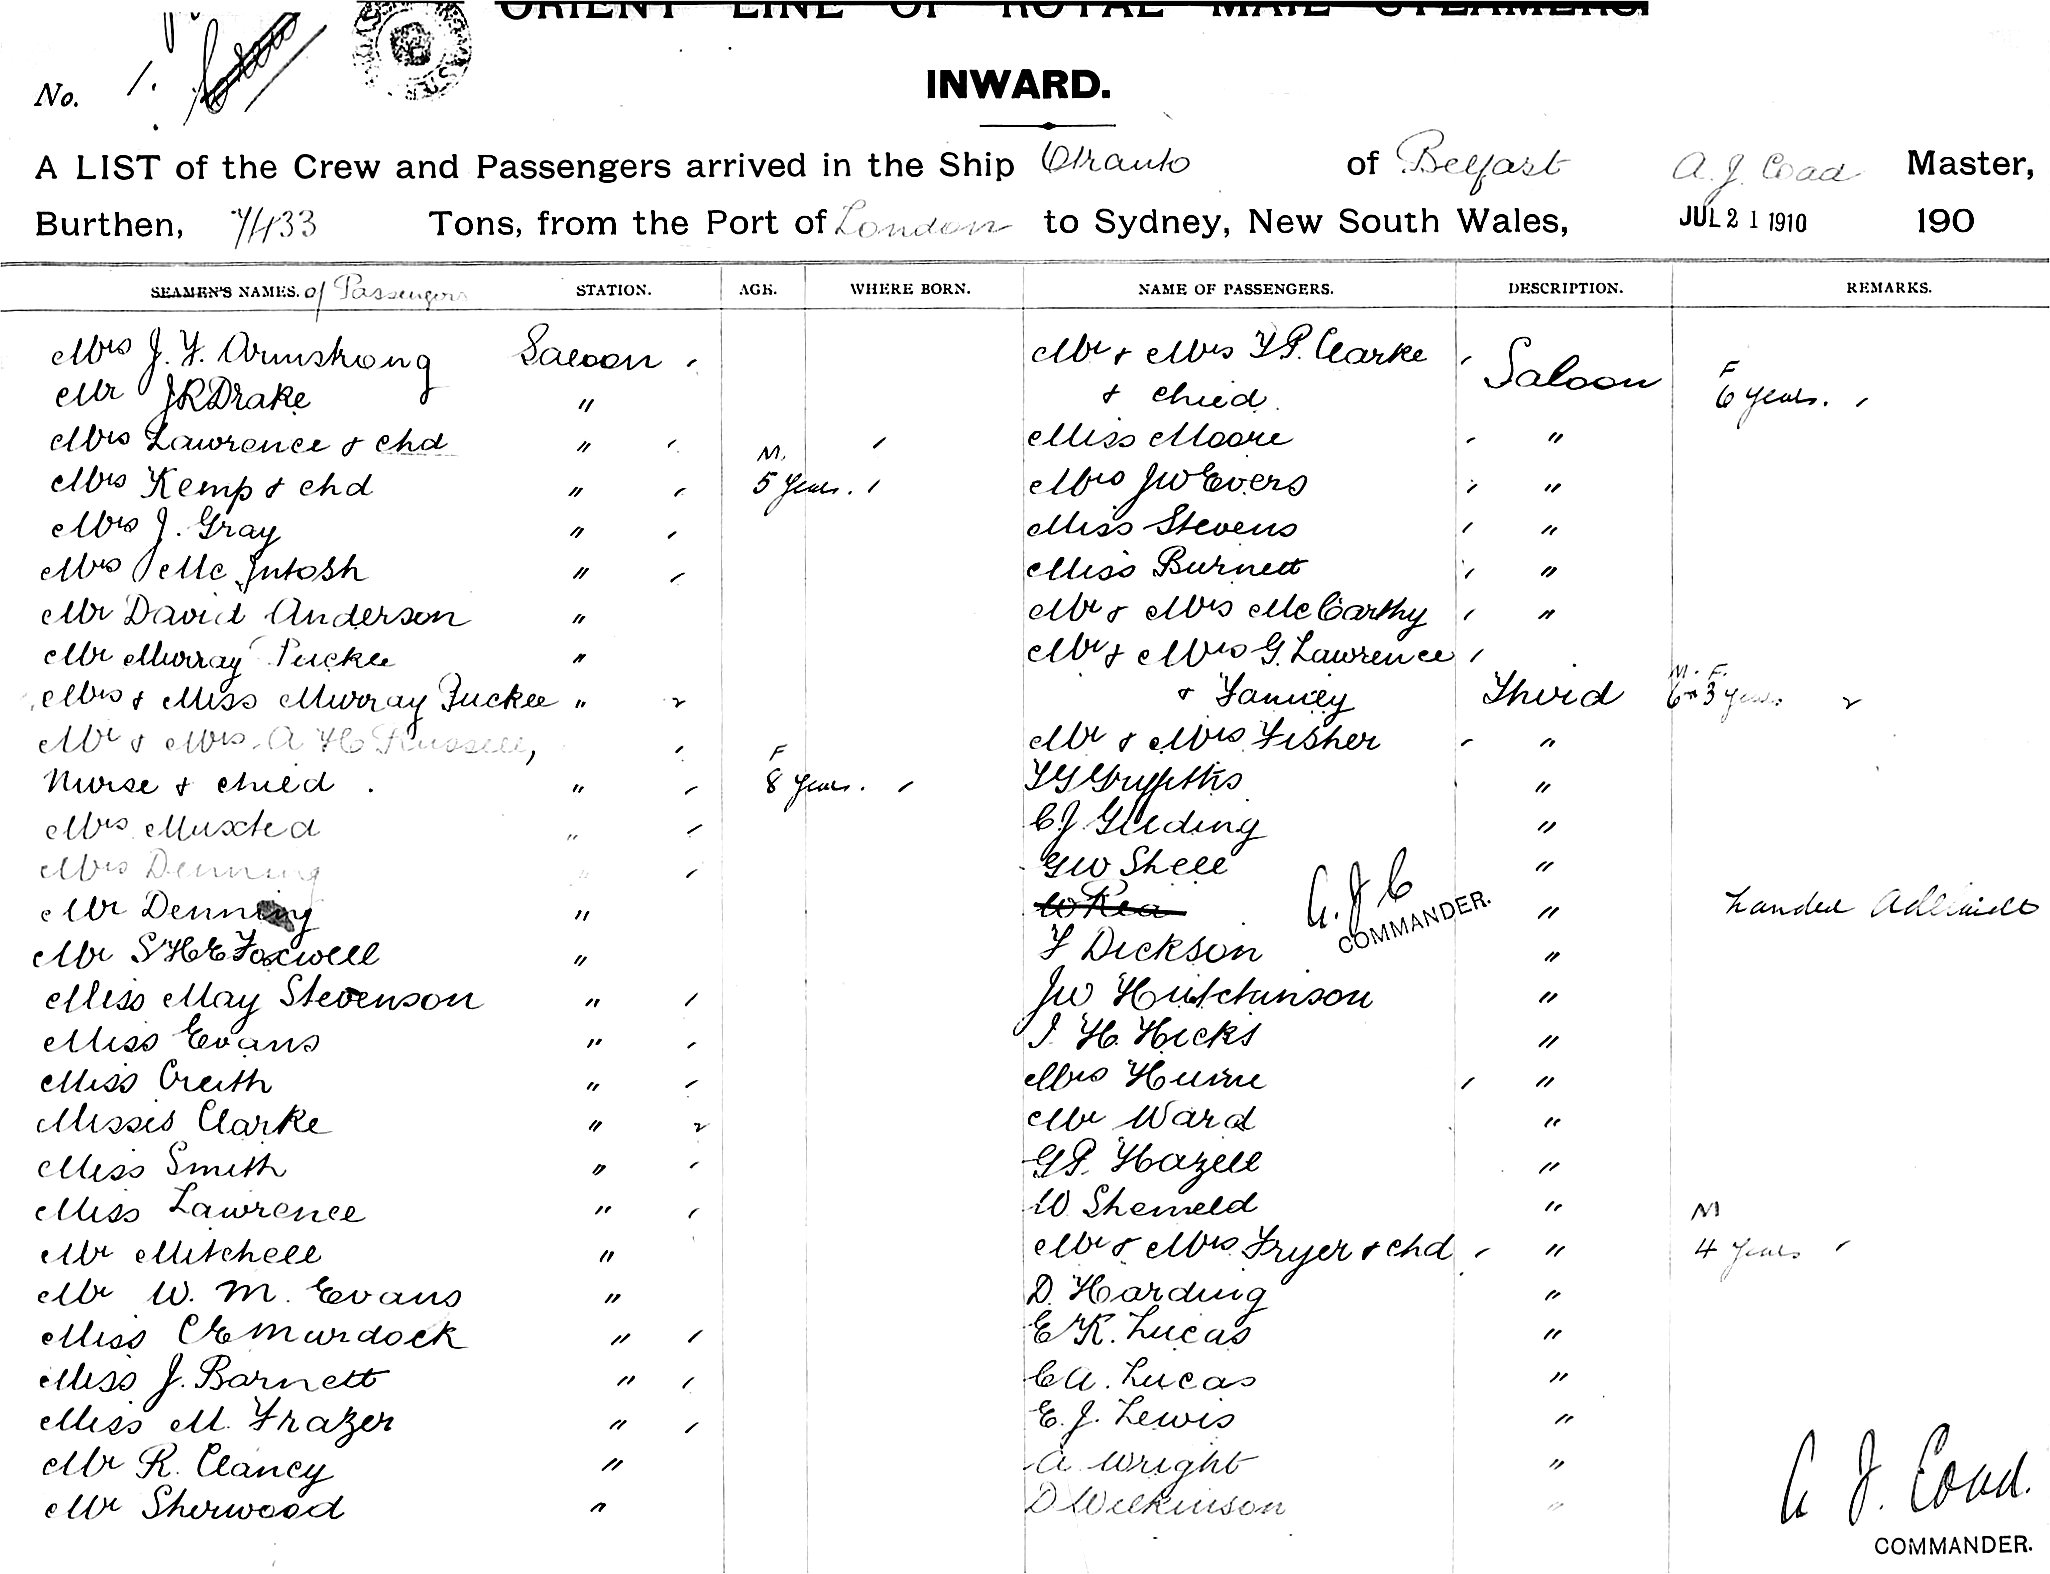 ORIENT LINE OF ROYAL MAIL STEAMERS.
No. 1.
INWARD.
A LIST of the Crew and Passengers arrived in the Ship Otranto of Belfast A. J. Coad Master,
Burthen, 7433 Tons, from the Port of London to Sydney, New South Wales, JUL 21 1910 190
SEAMEN'S NAMES. of Passengers STATION. AGE. WHERE BORN. NAME OF PASSENGERS. DESCRIPTION. REMARKS.
Mrs J. F. Armstrong Saloon
Mr J R Drake "
Mrs Lawrence & chd "
Mrs Kemp & chd " M. 5 years.
Mrs J. Gray "
Mrs McIntosh "
Mr David Anderson "
Mr Murray Puckle "
Mrs & Miss Murray Puckle "
Mr & Mrs A H Russell,
Nurse & child. " F 8 years.
Mrs Muxted "
Mrs Denning "
Mr Denning "
Mr S H E Foxwell "
Miss May Stevenson "
Miss Evans "
Miss Creith "
Misses Clarke "
Miss Smith "
Miss Lawrence "
Mr Mitchell "
Mr W. M. Evans "
Miss C E Murdock "
Miss J. Barnett "
Miss M. Frazer "
Mr R. Clancy "
Mr Sherwood "
Mr & Mrs F P. Clarke
& child. Saloon F 6 years.
Miss Moore "
Mrs J W Evers "
Miss Stevens "
Miss Burnett "
Mr & Mrs McCarthy "
Mr & Mrs G. Lawrence
& Family Third M. F. 6 & 3 years.
Mr & Mrs Fisher "
T G Gryffiths "
C J Gilding "
G W Shell "
W Rea " Landed Adelaide
A. J. C
COMMANDER.
F Dickson "
J W Hutchinson "
I. H. Hicks "
Mrs Hume "
Mr Ward "
G P. Hazell "
W Shemeld "
Mr & Mrs Fryer & chd " M 4 years
D. Harding "
E K. Lucas "
C A. Lucas "
E. J. Lewis "
A Wright "
D Wilkinson "
A. J. Coad.
COMMANDER.